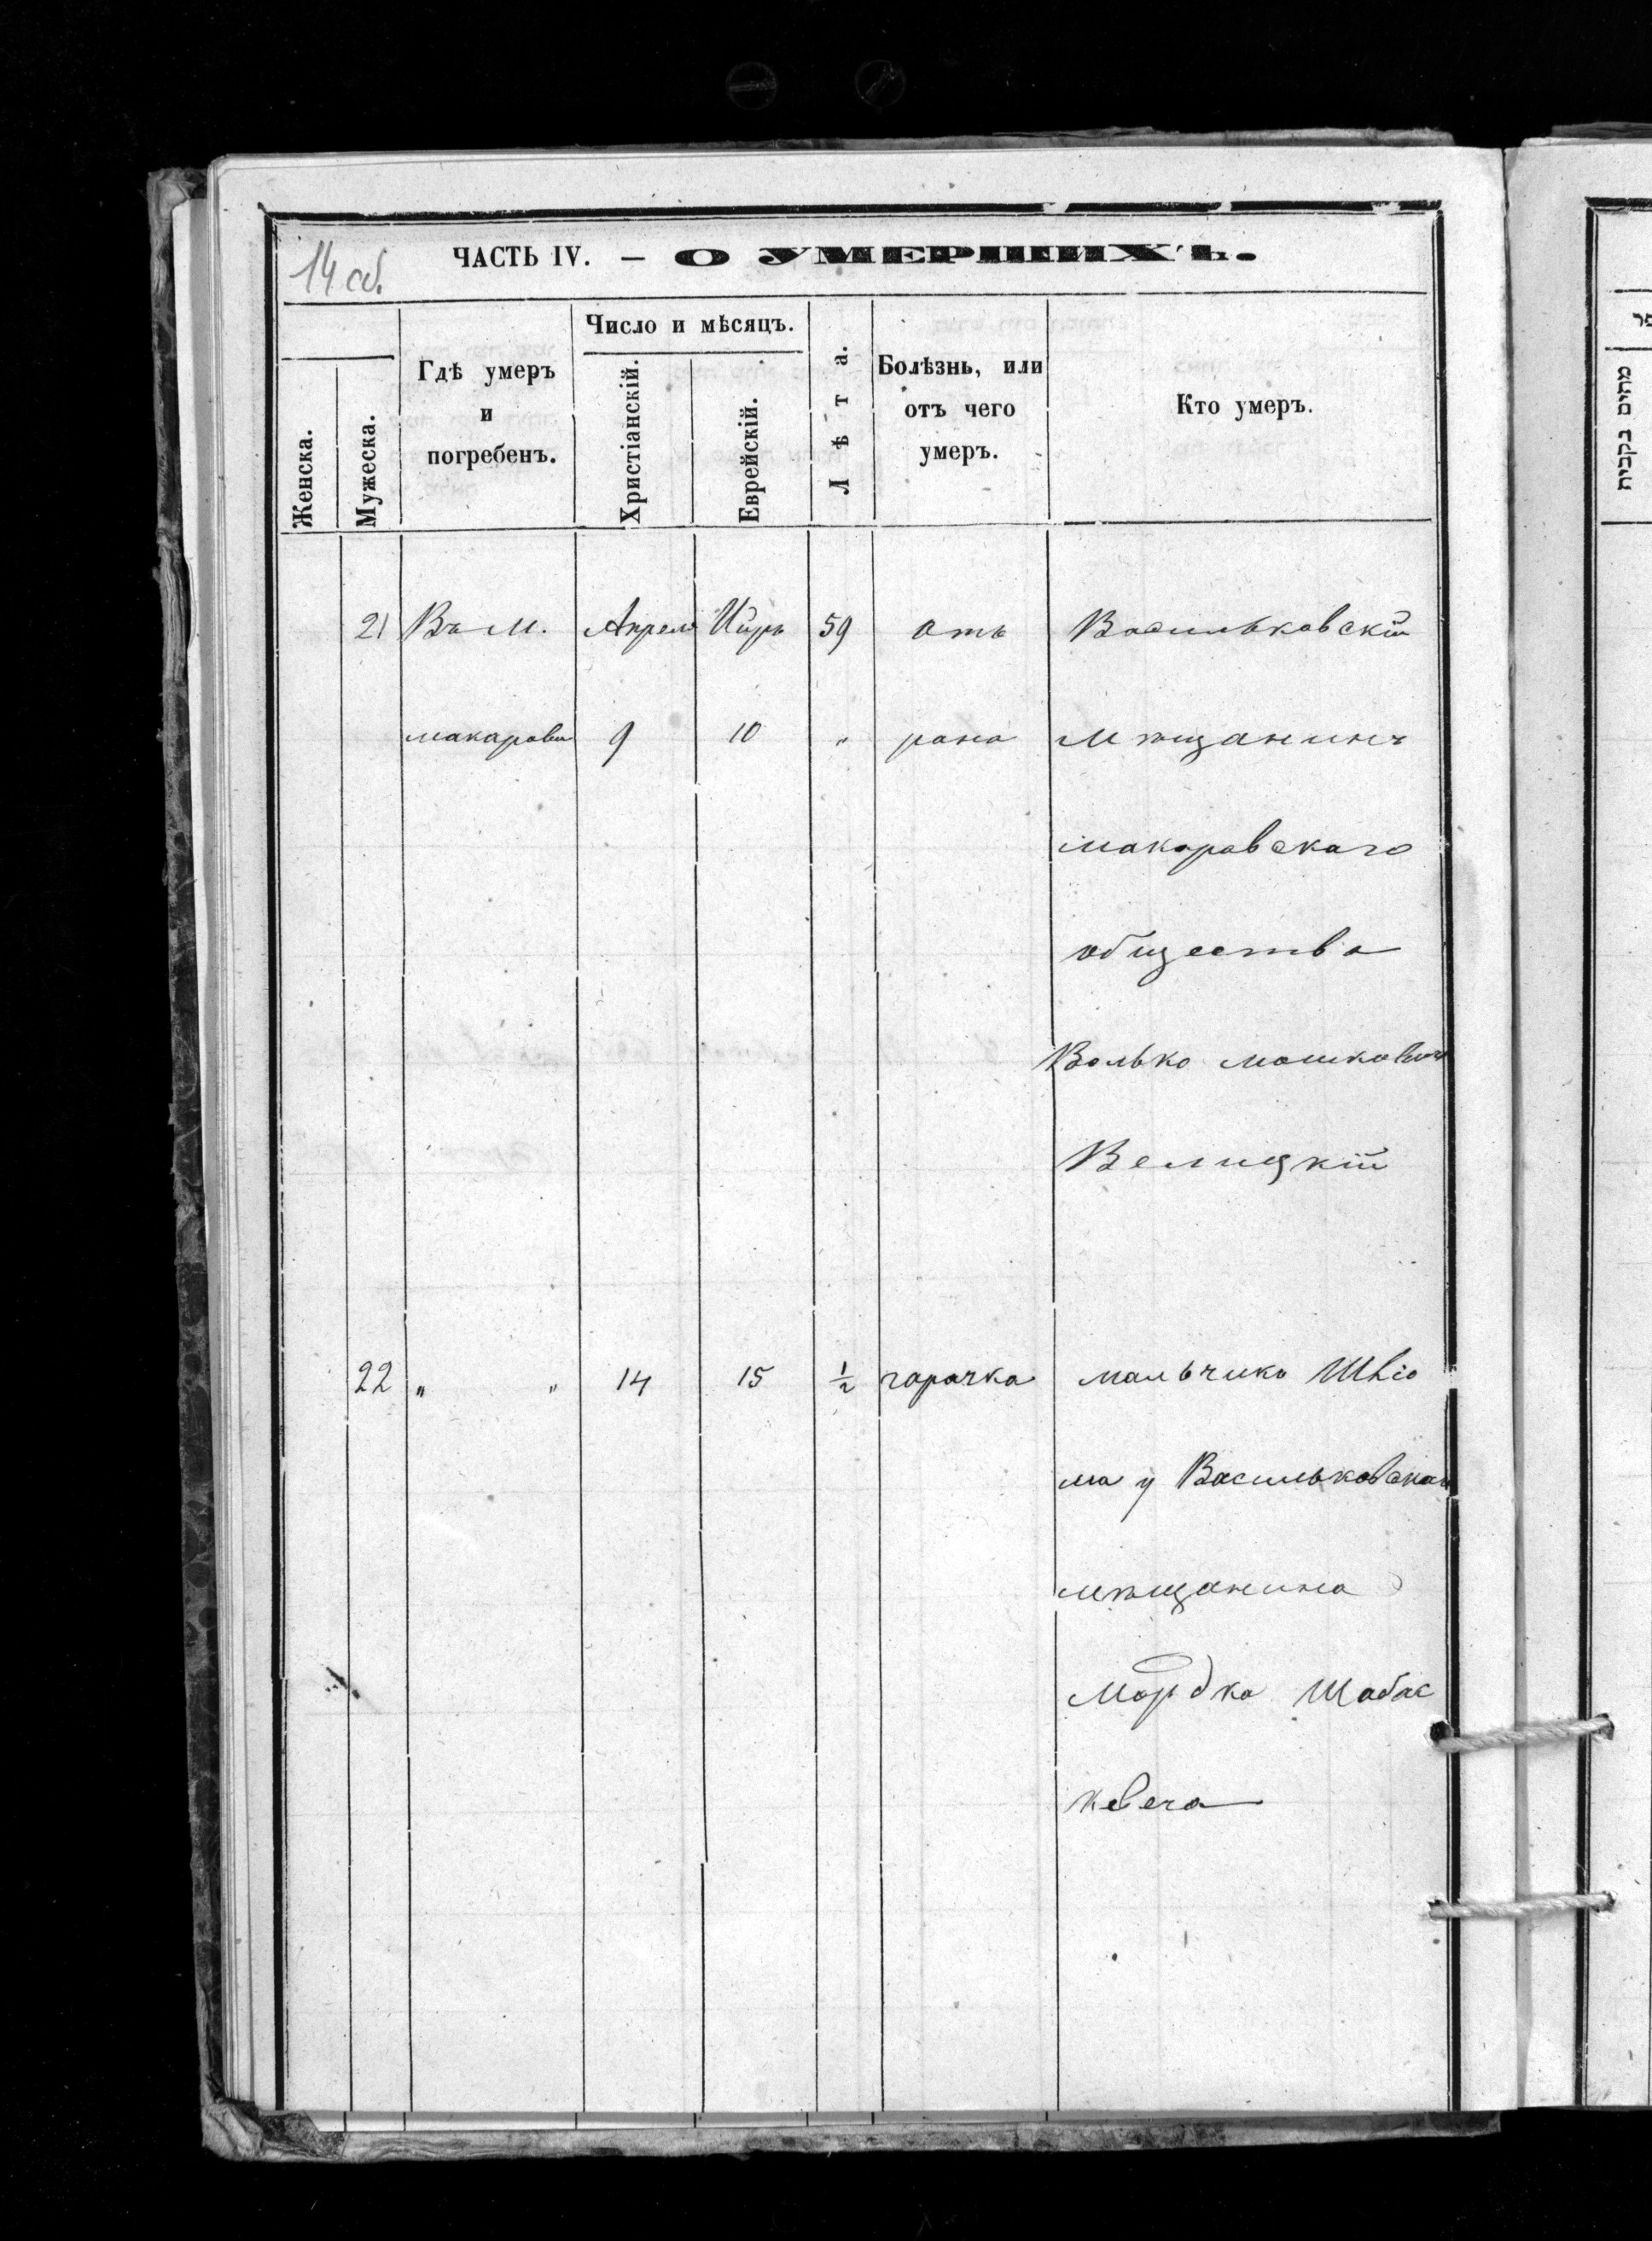 14 об.
ЧАСТЬ IV. — О УМЕРШИХЪ.
Женска.
Мужеска.
Гдѣ умеръ
и
погребенъ.
Число и мѣсяцъ.
Христіанскій.
Еврейскій.
Лѣта.
Болѣзнь, или
отъ чего
умеръ.
Кто умеръ.
21 Въ М. Апреля Ийръ 59 отъ Васильковскій
макарови 9 10 " рана мѣщанинъ
макаровскаго
общества
Волько мошковичъ
Велицкій
22 " " 14 15 ½ гарачка мальчикъ Швіо
ма у Васильковскаго
мѣщанина
Мордка Шабас
кевеча
מתים בקבית